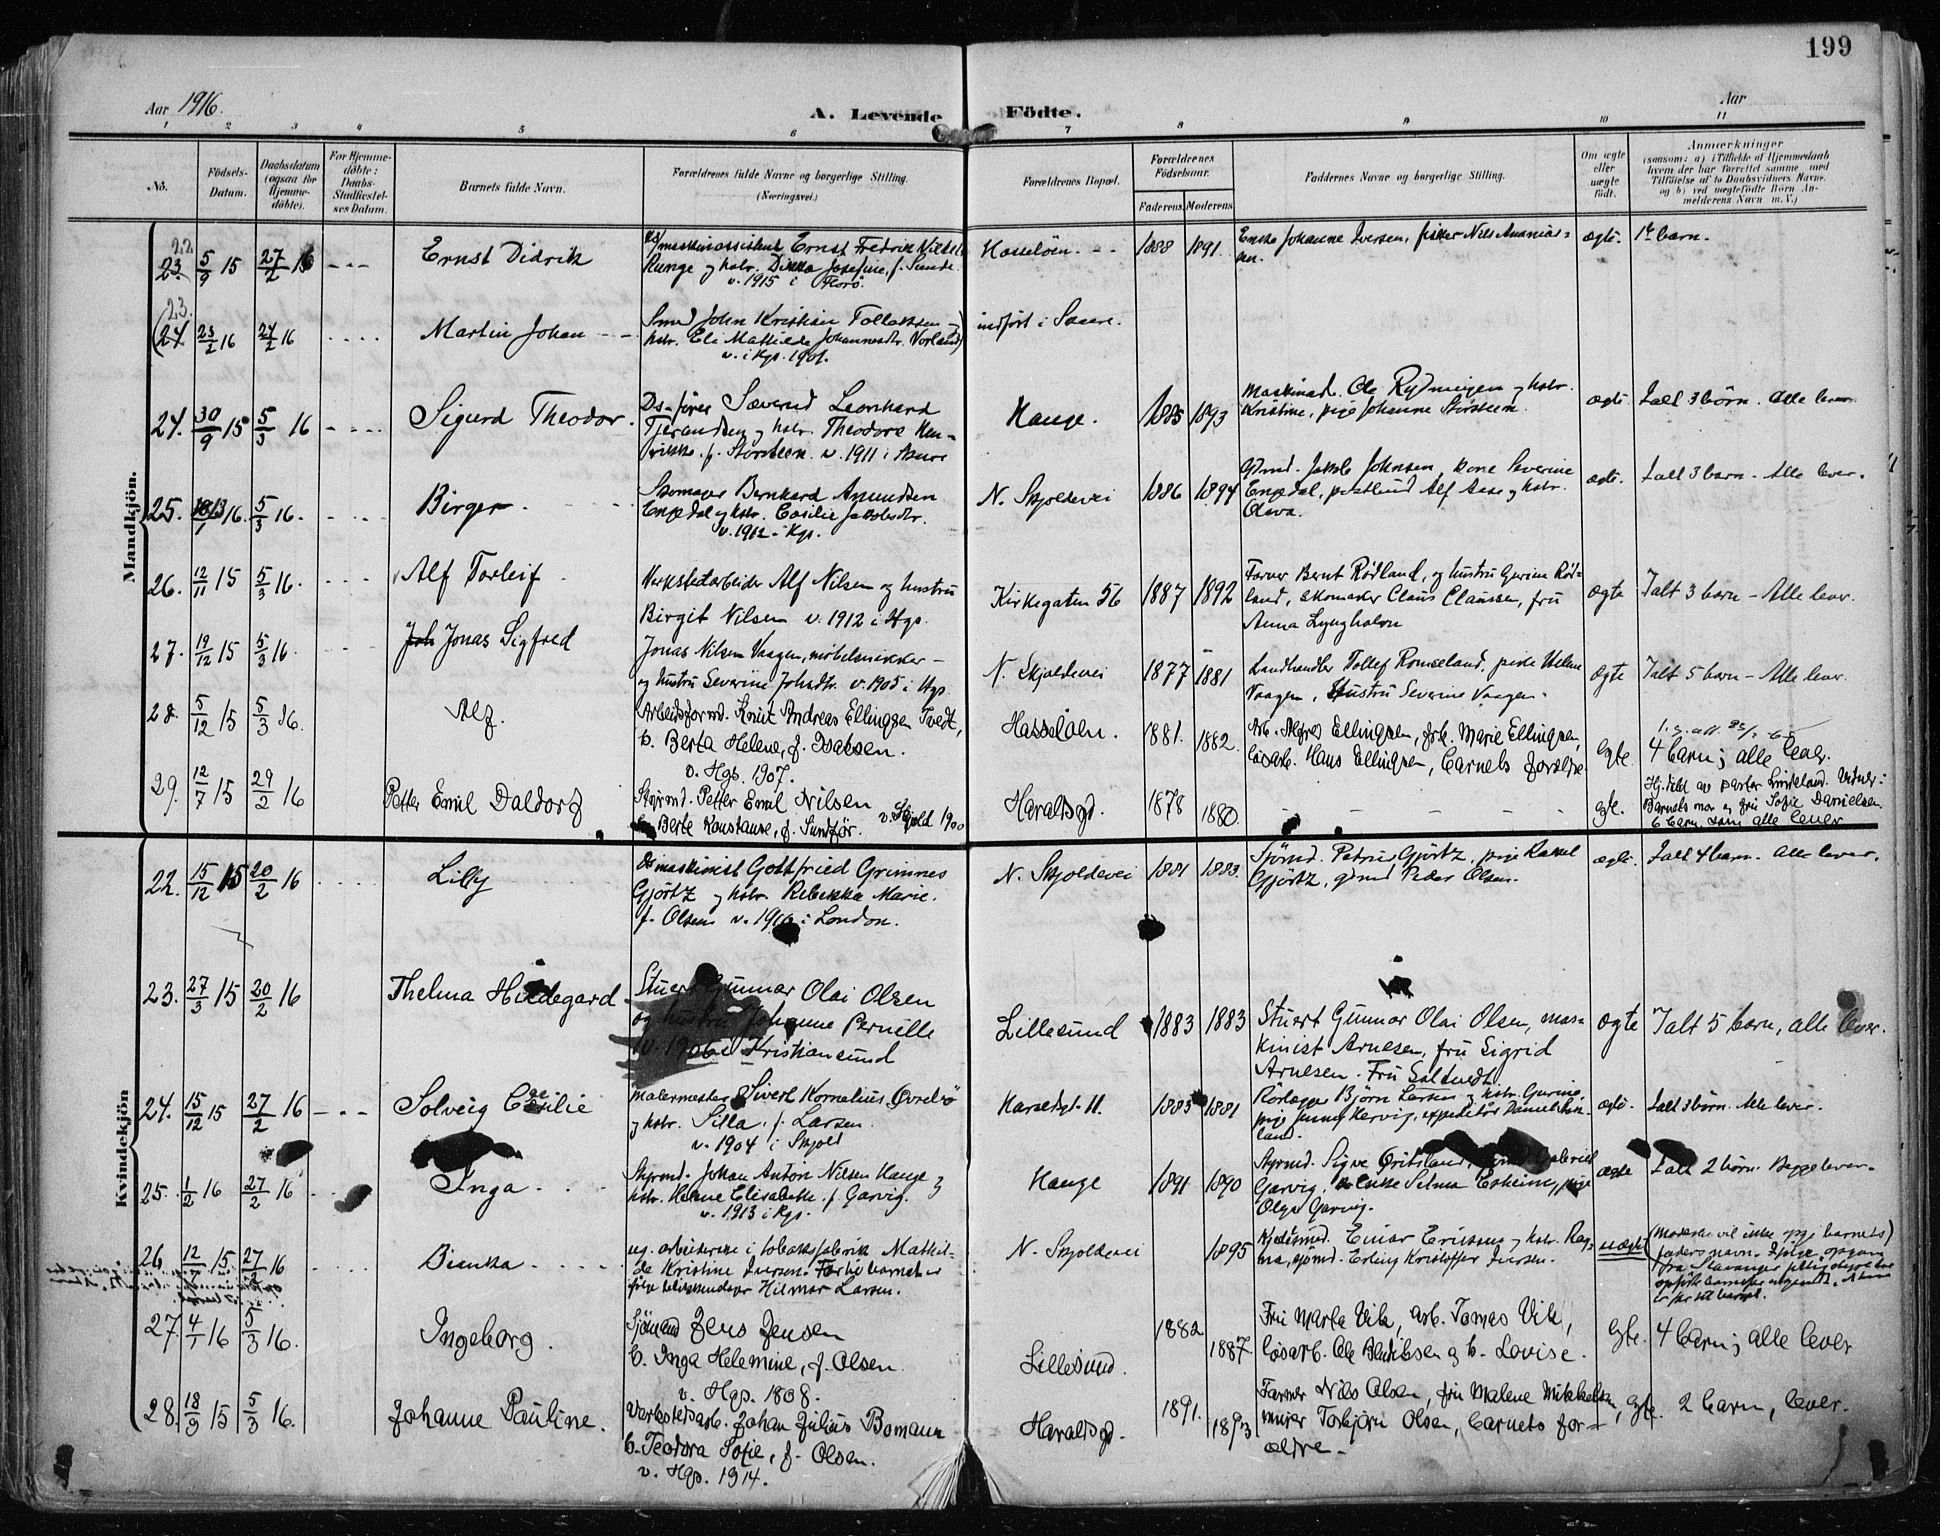 199
Aar 1916.
A. Levende Fødte.
Aar
1 2 3 4 5 6 7 8 9 10 11
No.
Fødsels-
Datum.
Daabsdatum
(ogsaa for
Hjemme-
døbte).
For Hjemme-
døbte:
Daabs-
Stadfæstel-
ses Datum.
Barnets fulde Navn.
Forældrenes fulde Navne og borgerlige Stilling.
(Næringsvei.)
Forældrenes Bopæl.
Forældrenes
Fødselsaar.
Faderens. Moderens.
Faddernes Navne og borgerlige Stilling.
Om ægte
eller
uægte
født.
Anmærkninger
(saasom: a) i Tilfælde af Hjemmedaab
hvem der har forrettet samme, med
Tilføielse af to Daabsvidners Navne,
og b) ved uægtefødte Børn An-
melderens Navn m. V.)
Mandkjøn.
22
23. 5/9 15 27/2 16 - - - Ernst Didrik
maskinassistent Ernst Fredrik
Runge og hstr. Josefine, f. Sunde
v. 1915 i Florø.
Hasseløen. - - 1888 1891.
Enke Johanne Iversen, fisker Nils
ægte. 1ste barn.
23.
(24 23/2 16 27/2 16 Martin Johan - -
Smed John Kristian Tollaksen
hstr. Eli Mathilde Johannesdtr. Vorland)
v. i Hgs. 1901.
indført i Skaare.
24. 30/9 15 5/3 16 - - - Sigurd Theodor.
Ds-fører Severud Leonhard
Tjerandsen og hstr. Theodora Hen-
rikke. f. Storsteen. v. 1911 i
Hauge. 1885 1893
Maskinad. Ole og hstr.
Kristine, pige Johanne Storsteen.
ægte. Ialt 3 børn. Alle lever.
25. 16. 5/3 16. - Birger
Skomager Bernhard Amundsen
Engedal og hstr. Cecilie Jakobsdtr.
v. 1912 i Hgs.
N. Skjoldevei 1886 1894
Gbrmd. Jakob Johnsen, kone Severine
Engedal, postbud Alf Aase og hstr.
Olava.
ægte. Ialt 3 barn - Alle lever.
26. 12/11 15 5/3 16. - - - Alf Torleif
Verkstedarbeider Alf Nilsen og hustru
Birgit Nilsen v. 1912 i Hgs.
Kirkegaten 56 1887 1892
Farver Bernt Rødland, og hustru Gurine Rød-
land, skomaker Claus Claussen, fru
Anna Lyngholm
ægte Ialt 3 barn - Alle lever.
27. 19/12 15 5/3 16. Joh Jonas Sigfred
Jonas Nilsen Vaagen, møbelsnekker -
og hustru Severine Johsdtr. v. 1905 i Hgs.
N. Skjoldevei 1877 1881
Landhandler Tollef Romseland, pike Helene
Vaagen, Hustru Severine Vaagen.
ægte Ialt 5 barn - Alle lever.
28. 5/12 15 5/3 16. Alf.
Arbeidsformd. Knut Andreas Ellingsen Tvedt,
h. Berta Helene, f. Isaksen.
v. Hgs. 1907.
Hasseløen. 1881. 1882.
Arb. Alfred Ellingsen, frk. Marie Ellingsen,
løsarb. Hans Ellingsen, barnets forældre.
egte. 4 barn; alle lever.
29. 12/7 15 29/2 16 Petter Emil Daldorf
Styrmd. Petter Emil Nilsen
h. Berte Konstanse, f. Sundfør. v. Skjold 1900
Haraldsgd. 1878 1880.
- - - -
egte. Hj.døbt av pastor Lindeland. Vidner:
Barnets mor og fru Sofie Danielsen.
6 barn, som alle lever
Kvindekjøn
22. 15/12 15 20/2 16 Lilly
Ds maskinist Gottfried Grimnes
Gjørtz og hstr. Rebekka Marie.
f. Olsen v. 1910 i London.
N. Skjoldevei 1881 1883.
Sjømd. Petrus Gjørtz, pige Rakel
Gjørtz, gbrmd Peder Olsen.
ægte. Ialt 4 barn. Alle lever.
23. 27/3 15 20/2 16 Thelma Hildegard
Stuert Gunnar Olai Olsen
og hustru Johanne Pernille
v. 1906 i Kristiansund
Lillesund 1883 1883
Stuert Gunnar Olai Olsen, mas-
kinist Arnesen, fru Sigrid
Arnesen. Fru
ægte Ialt 5 barn, alle lever.
24. 15/12 15 27/2 16 - - - Solveig Cecilie
Malermester Sivert Kornelius Øvrebø
og hstr. Silla, f. Larsen.
v. 1904 i Skjold
Haraldsgt. 11. 1885 1881
Rørlægger Bjørn Larsen og hstr. Gurine,
pige Jenny Hervig, expeditør Daniel
land.
ægte. Ialt 3 børn. Alle lever.
25. 1/2 16 27/2 16 Inga
Styrmd. Johan Anton Nilsen Hauge og
hstr. Helene Elisabeth f. Garvig.
v. 1913 i Hgs.
Hauge 1891 1890
Styrmd. Sigve Gabriel
Garvig, Enke Selma pige
Olga Garvig.
ægte Ialt 2 børn. Begge lever.
26. 15. 27/2 16 Bianka
ug. arbeiderske i tobaksfabrik Mathil-
de Kristine Iversen. Far til barnet er
Hilmar Larsen.
N. Skjoldevei 1895
Einar Eriksen og hstr. Rag-
na, sjømd. Erling Kristoffer Iversen.
uægte (Moderen vil ikke opgi barnets)
fadersnavn. Ifølge opgave
fra Stavanger
27. 4/1 16 5/3 16. Ingeborg.
Sjømand Jens Jensen
h. Inga Helemine, f. Olsen.
v. Hgs. 1908.
Lillesund. 1882 1887.
Fru Marta Vik, arb. Tomas Vik,
løsarb. Ole og h. Lovise.
egte. 4 barn; alle lever
28. 18/9 15 5/3 16. Johanne Pauline.
Verkstedarb. Johan Julius Bomann
h. Teodora Sofie, f. Olsen.
v. Hgs. 1914.
Haraldsgd. 1891. 1893
Farmer Nils Olsen, fru Malene Mikkelsen,
murer Torbjørn Olsen, barnets for-
ældre.
egte. 2 barn, lever.